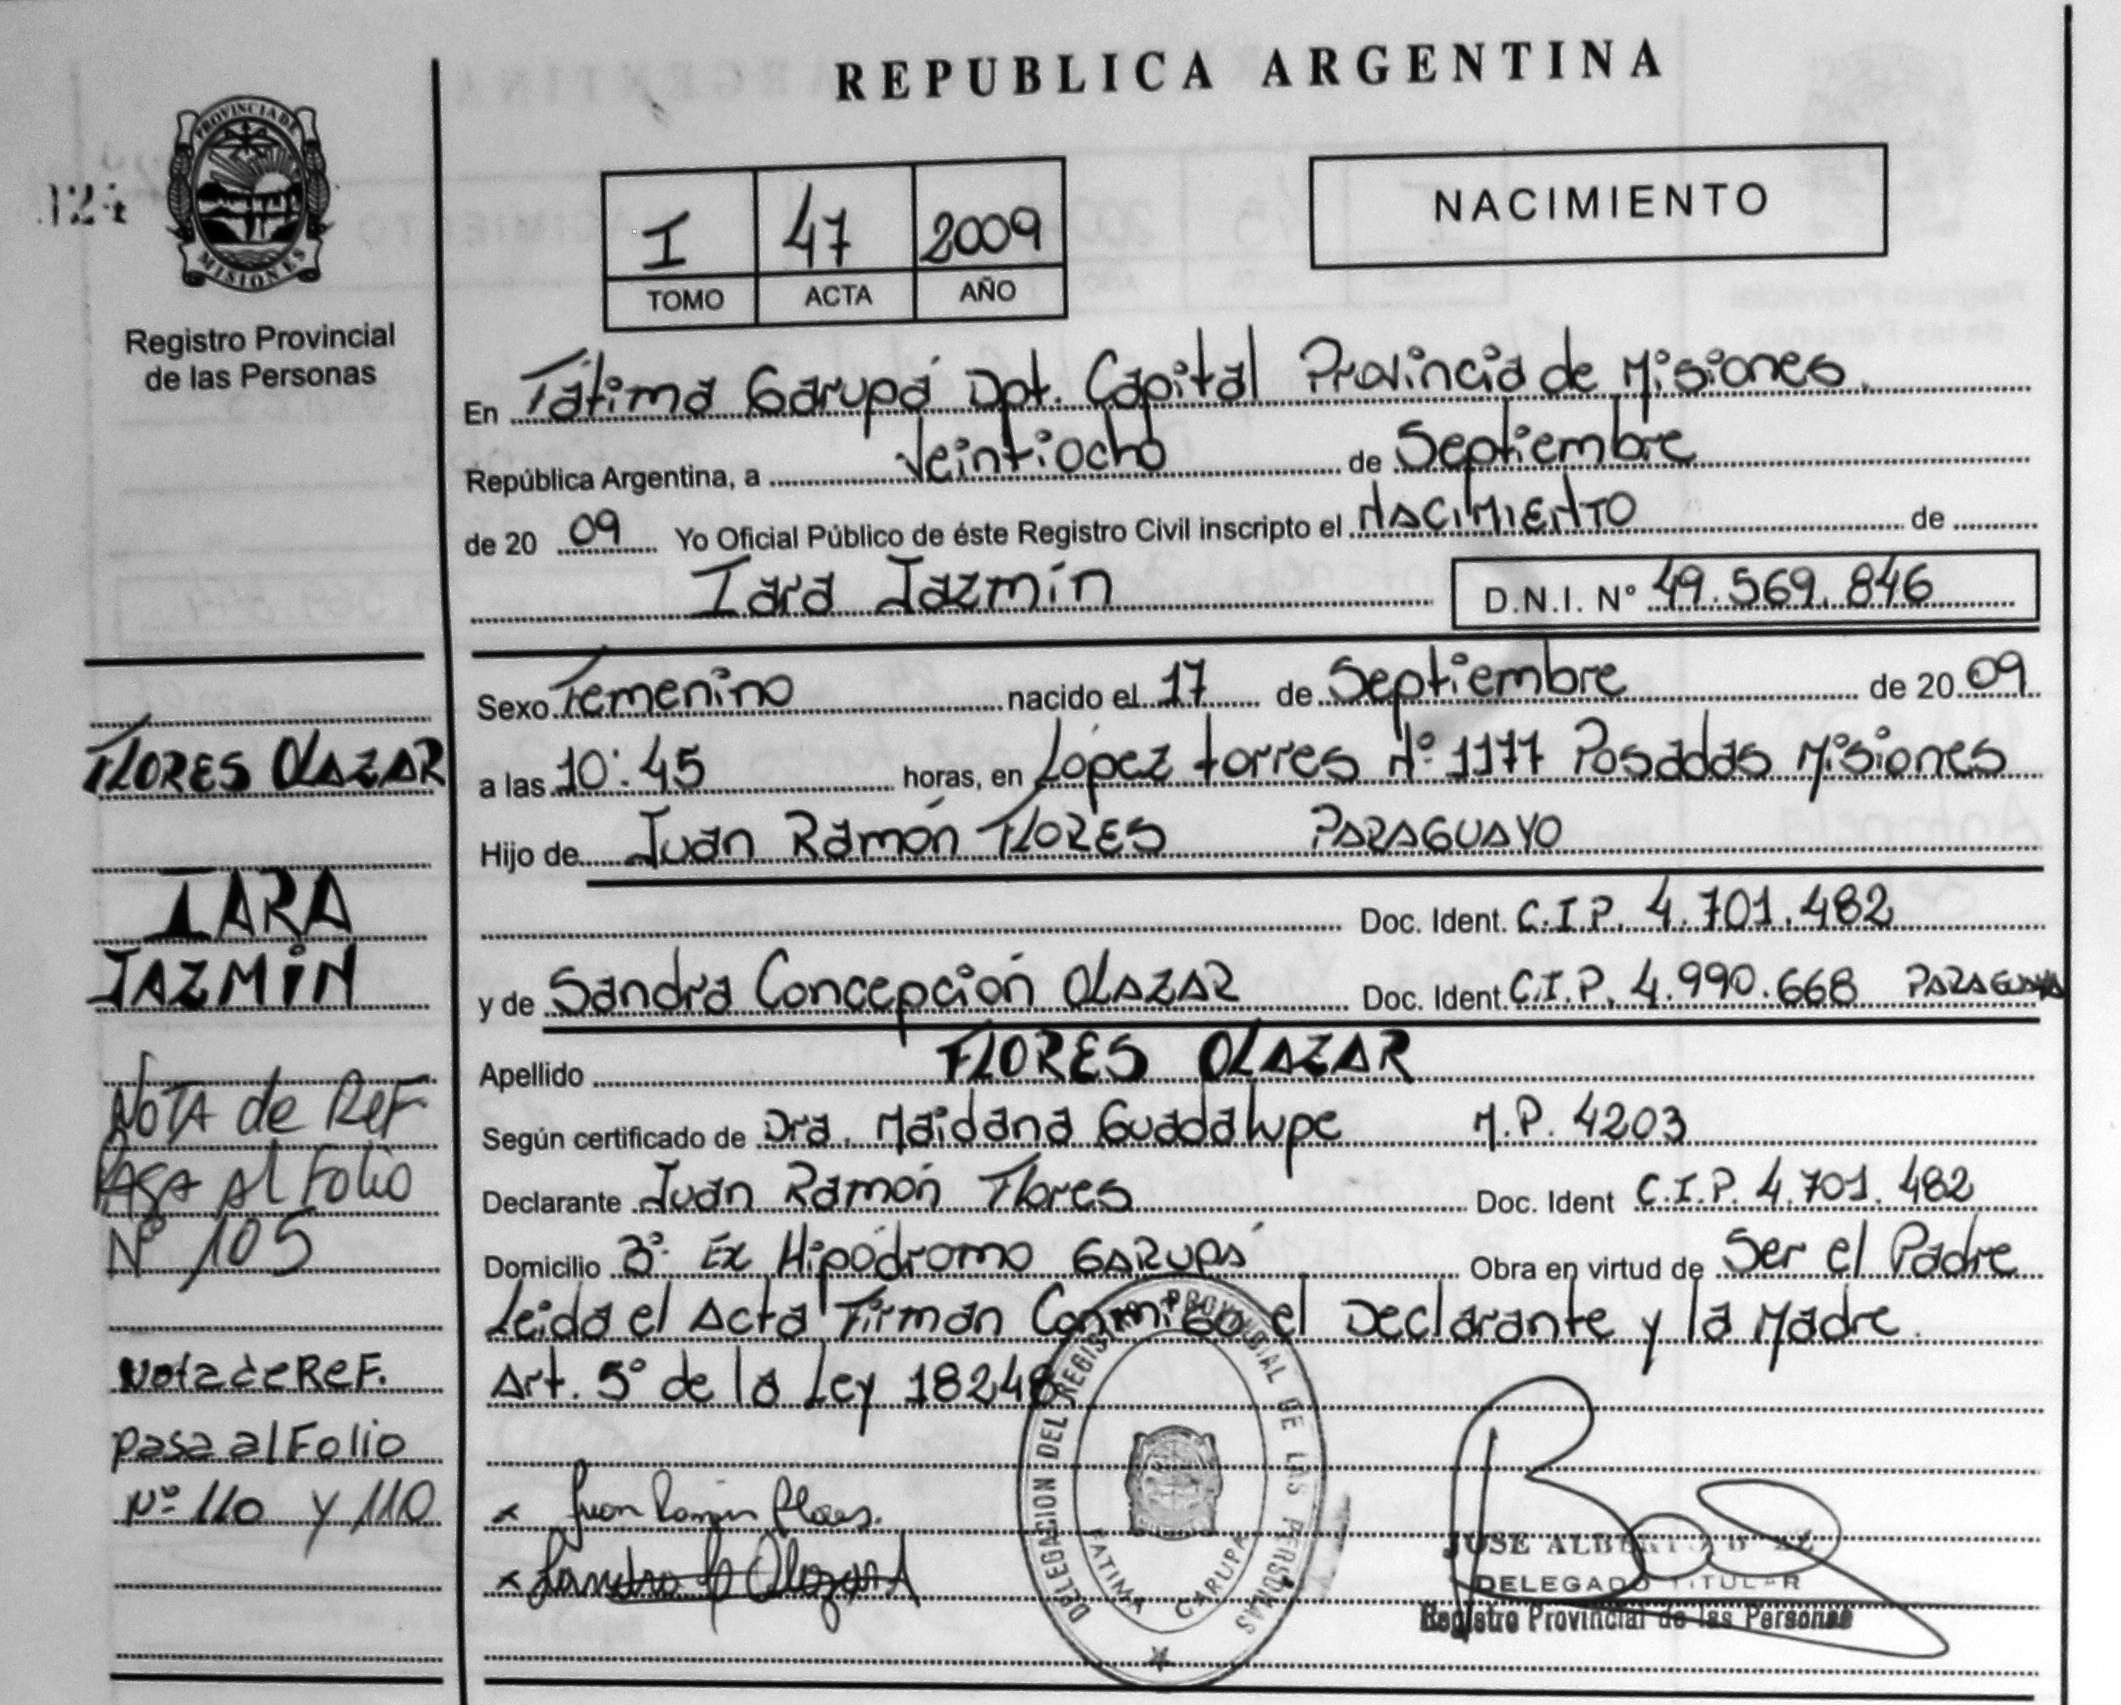 REPUBLICA ARGENTINA
PROVINCIA DE
MISIONES
Registro Provincial
de las Personas
I 47 2009
TOMO ACTA AÑO
NACIMIENTO
En Fátima Garupá Dpt. Capital Provincia de Misiones.
República Argentina, a Veintiocho de Septiembre
de 20 09 Yo Oficial Público de éste Registro Civil inscripto el NACIMIENTO de
Iara Jazmín D.N.I. Nº 49.569.846
Sexo Femenino nacido el 17 de Septiembre de 20 09
a las 10:45 horas, en López torres Nº 1177 Posadas Misiones
Hijo de Juan Ramón FLORES PARAGUAYO
Doc. Ident. C.I.P. 4.701.482
y de Sandra Concepción OLAZAR Doc. Ident C.I.P. 4.990.668 PARAGUAYA
Apellido FLORES OLAZAR
Según certificado de Dra. Maidana Guadalupe M.P. 4203
Declarante Juan Ramón Flores Doc. Ident C.I.P. 4.701.482
Domicilio Bº Ex Hipódromo GARUPÁ Obra en virtud de Ser el Padre
Leida el Acta Firman Conmigo el Declarante y la Madre.
Art. 5º de la Ley 18248
x Juan Ramón Flores.
x Sandra Olazar
DELEGACION DEL REGISTRO PROVINCIAL DE LAS PERSONAS
FATIMA GARUPA
JOSE ALBERTO
DELEGADO TITULAR
Registro Provincial de las Personas
FLORES OLAZAR
IARA
JAZMÍN
NOTA de REF
PASA Al Folio
Nº 105
Nota de REF.
pasa al Folio
Nº 110 y 110